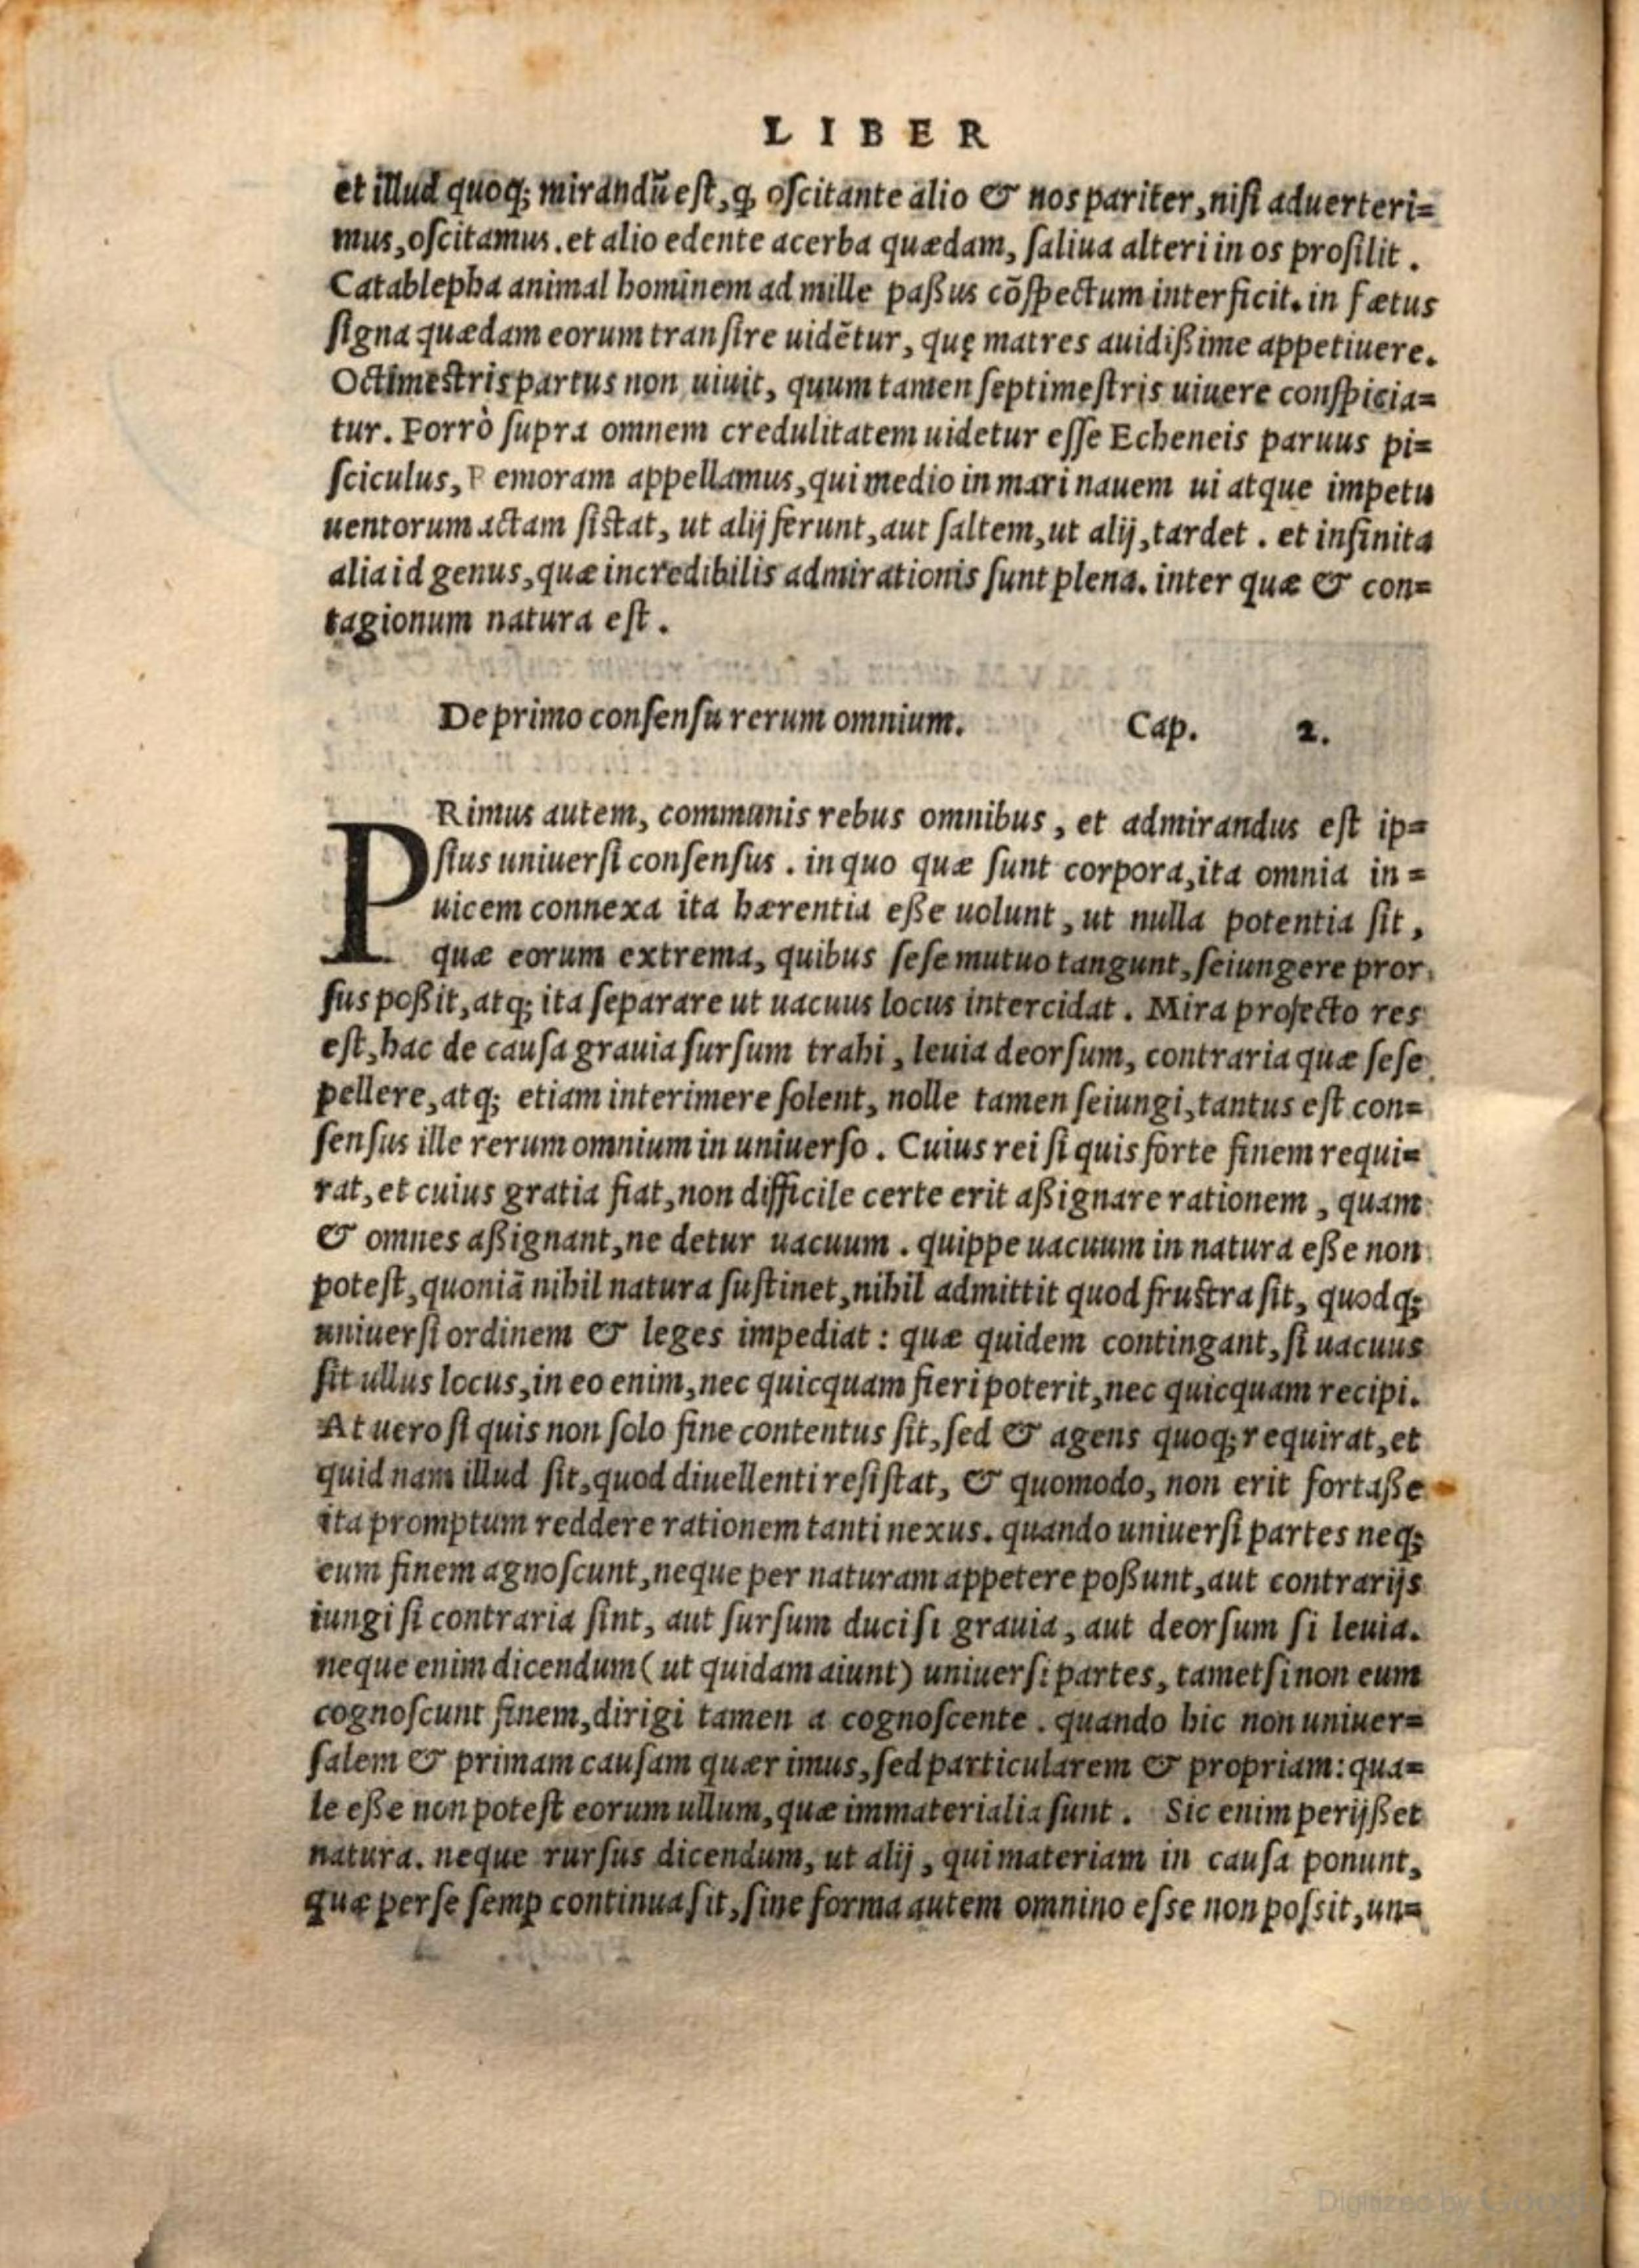 LIBER
et illud quoq; mirandũ est, ꝙ oſcitante alio & nos pariter, niſi aduerteri=
mus, oſcitamus. et alio edente acerba quædam, ſaliua alteri in os proſilit.
Catablepha animal hominem ad mille paßus cõſpectum interficit. in fætus
ſigna quædam eorum tranſire uidẽtur, quę matres auidißime appetiuere.
Octimeſtris partus non uiuit, quum tamen ſeptimeſtris uiuere conſpicia=
tur. Porrò ſupra omnem credulitatem uidetur eſſe Echeneis paruus pi=
ſciculus, Remoram appellamus, qui medio in mari nauem ui atque impetu
uentorum actam ſiſtat, ut alij ferunt, aut ſaltem, ut alij, tardet. et infinita
alia id genus, quæ incredibilis admirationis ſunt plena. inter quæ & con=
tagionum natura eſt.
De primo conſenſu rerum omnium. Cap. 2.
PRimus autem, communis rebus omnibus, et admirandus eſt ip=
ſius uniuerſi conſenſus. in quo quæ ſunt corpora, ita omnia in=
uicem connexa ita hærentia eße uolunt, ut nulla potentia ſit,
quæ eorum extrema, quibus ſeſe mutuo tangunt, ſeiungere pror
ſus poßit, atq; ita ſeparare ut uacuus locus intercidat. Mira profecto res
eſt, hac de cauſa grauia ſurſum trahi, leuia deorſum, contraria quæ ſeſe
pellere, atq; etiam interimere ſolent, nolle tamen ſeiungi, tantus eſt con=
ſenſus ille rerum omnium in uniuerſo. Cuius rei ſi quis forte finem requi=
rat, et cuius gratia fiat, non difficile certe erit aßignare rationem, quam
& omnes aßignant, ne detur uacuum. quippe uacuum in natura eße non
poteſt, quoniã nihil natura ſuſtinet, nihil admittit quod fruſtra ſit, quodq;
uniuerſi ordinem & leges impediat: quæ quidem contingant, ſi uacuus
ſit ullus locus, in eo enim, nec quicquam fieri poterit, nec quicquam recipi.
At uero ſi quis non ſolo fine contentus ſit, ſed & agens quoq; requirat, et
quid nam illud ſit, quod diuellenti reſiſtat, & quomodo, non erit fortaße
ita promptum reddere rationem tanti nexus. quando uniuerſi partes neq;
eum finem agnoſcunt, neque per naturam appetere poßunt, aut contrarijs
iungi ſi contraria ſint, aut ſurſum duci ſi grauia, aut deorſum ſi leuia.
neque enim dicendum (ut quidam aiunt) uniuerſi partes, tametſi non eum
cognoſcunt finem, dirigi tamen a cognoſcente. quando hic non uniuer=
ſalem & primam cauſam quærimus, ſed particularem & propriam: qua=
le eße non poteſt eorum ullum, quæ immaterialia ſunt. Sic enim perijßet
natura. neque rurſus dicendum, ut alij, qui materiam in cauſa ponunt,
quæ per ſe ſemꝑ continua ſit, ſine forma autem omnino eſse non poſsit, un=
Digitized by Google